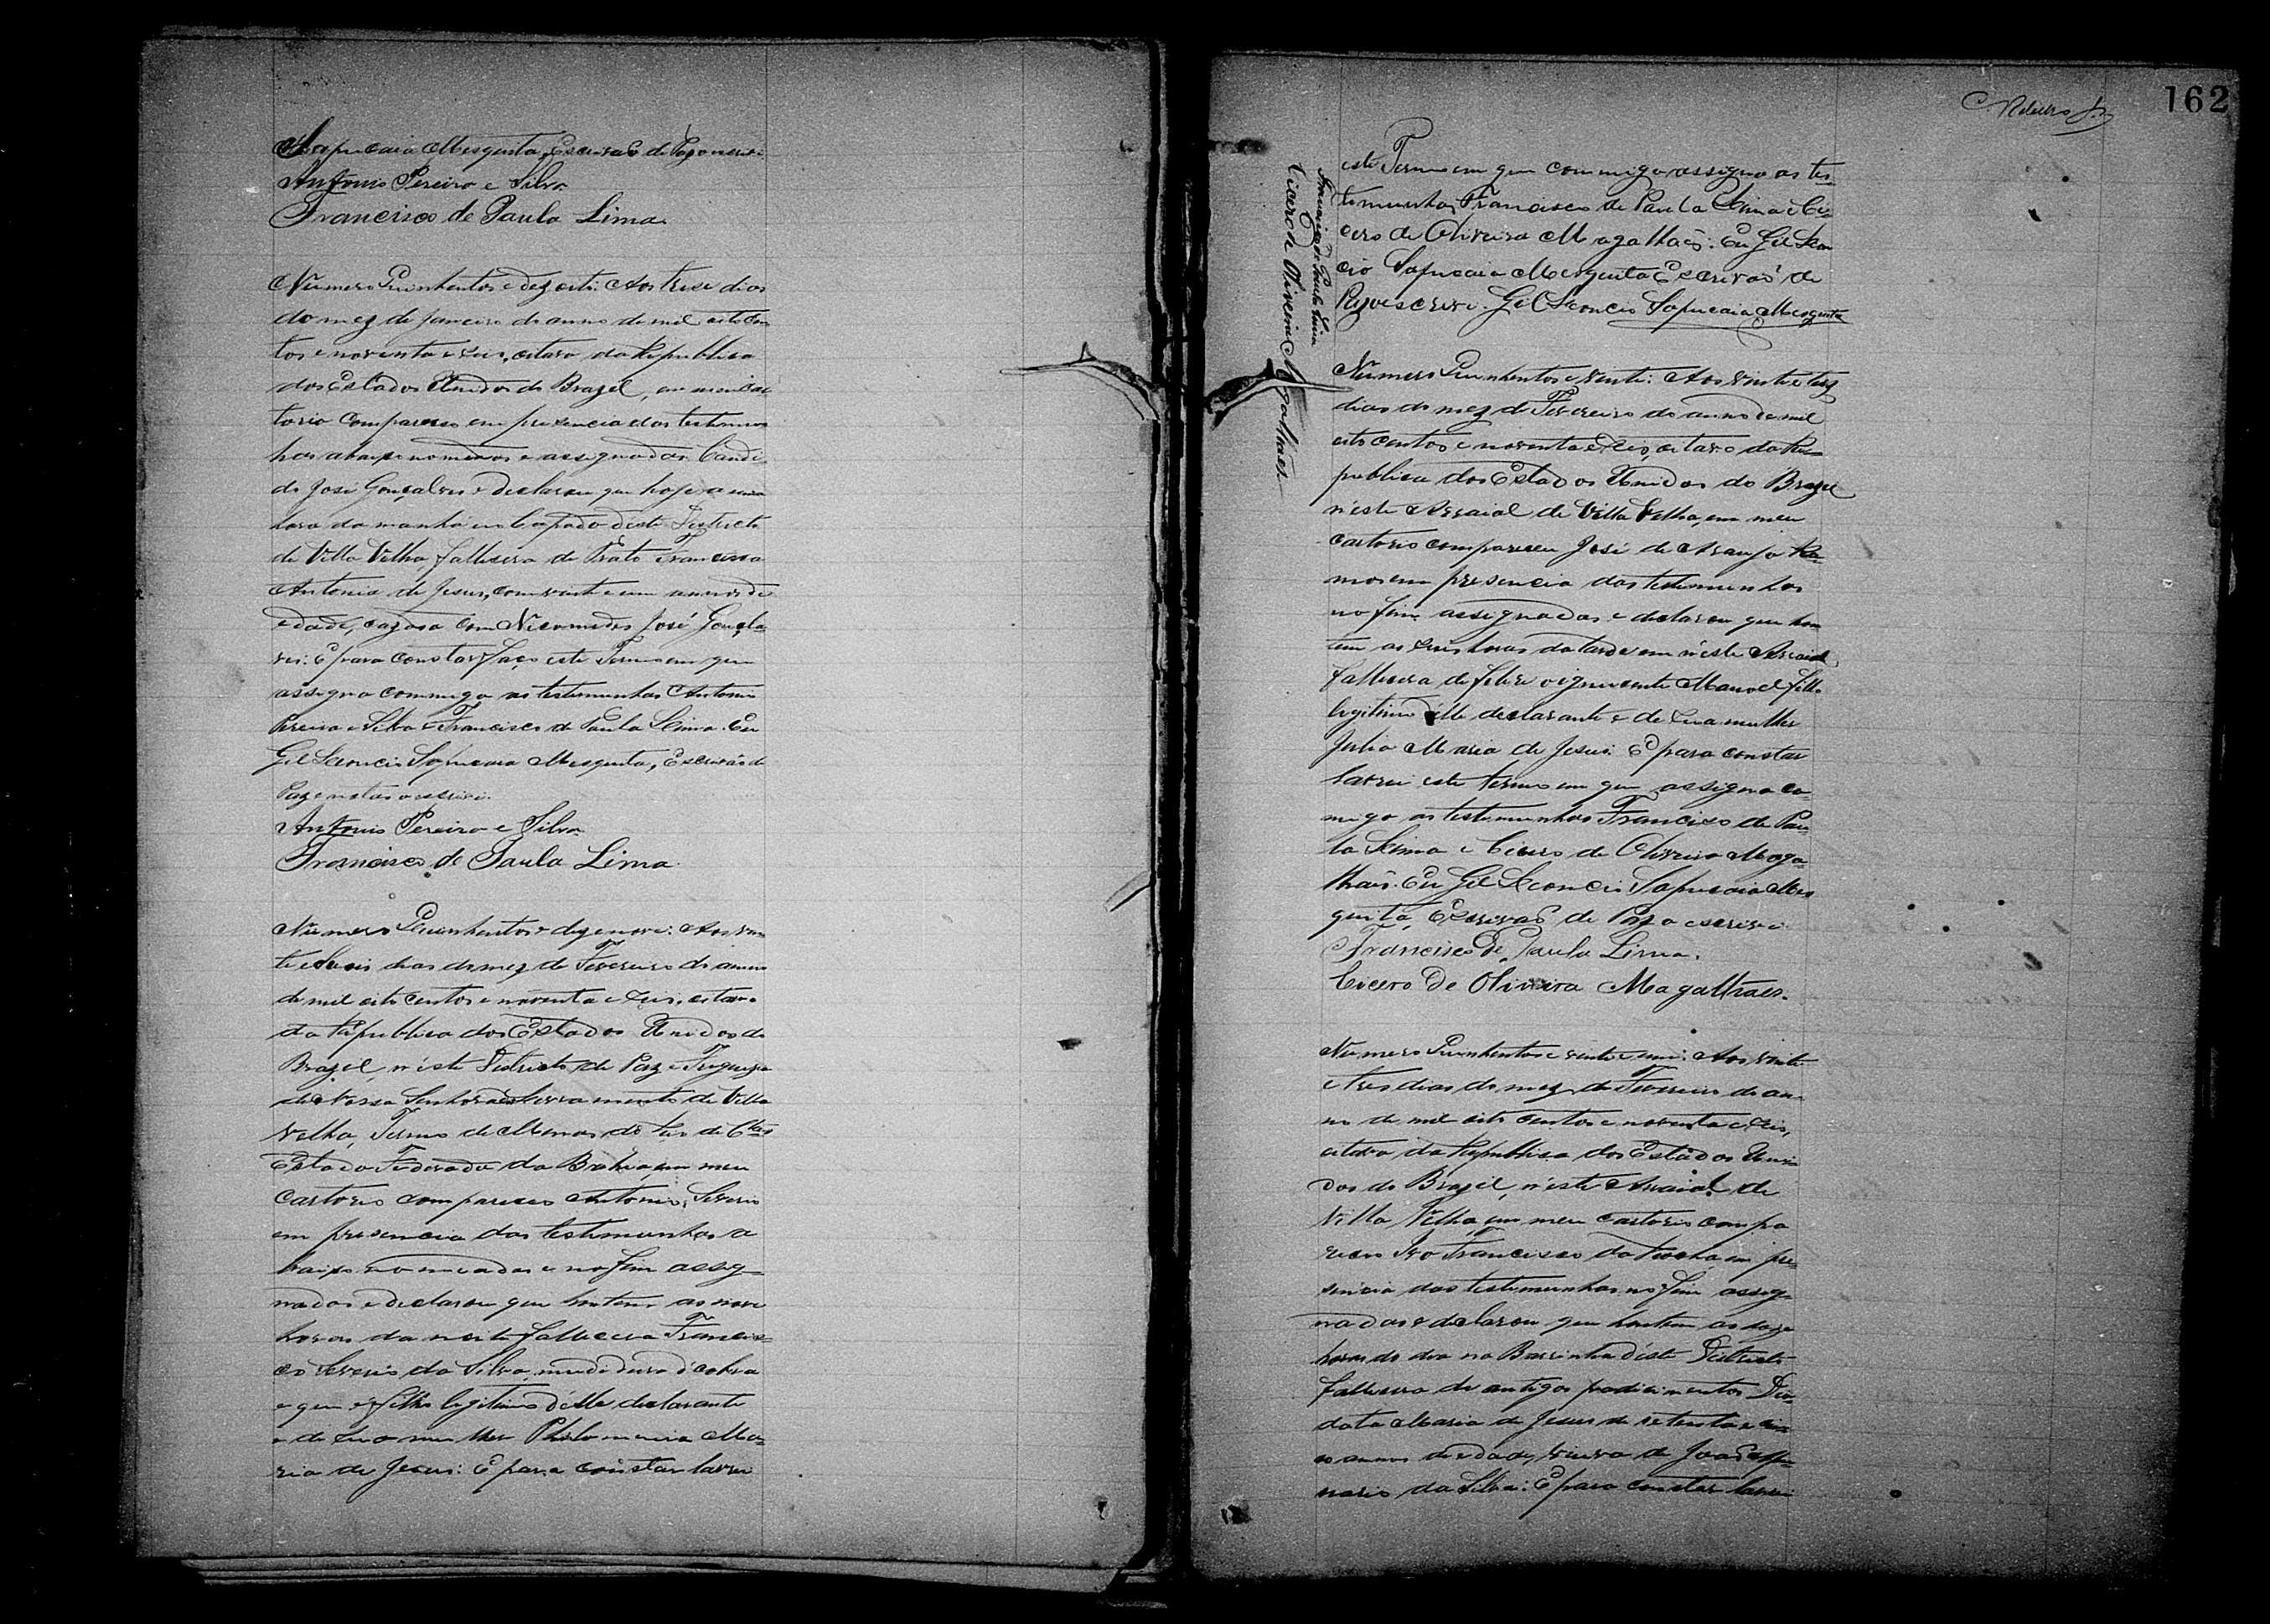 Sapucaia Mesquita, Escrivaõ de Paz o escrevi
Antonio Pereira e Silva
Francisco de Paula Lima.
Numero Quinhentos e dezoito: Aos treze dias
do mez de Janeiro do anno de mil oito cen
tos e noventa e seis, oitavo da Republica
dos Estados Unidos do Brazil, em meu car
torio compareceo em presencia das testemun
has abaixo nomeadas e assignadas Candi
do José Gonçalves e declarou que hoje a uma
hora da manhã no Capado d'este Districto
de Villa Velha fallecera de Parto Francisca
Antonia de Jesus, com vinte e um annos de
edade, cazada com Nicomedes José Gonçla
ves: E para constar faço este Termo em que
assigna commigo as testemunhas Antonio
Pereira e Silva e Francisco de Paula Lima. Eu
Gil Leoncio Sapucaia Mesquita, Escrivão de
Paz e notas o escrevi.
Antonio Pereira e Silva
Francisco de Paula Lima
Numero Quinhentos e dezenove: Aos vin
te e dous dias do mez de Fevereiro do anno
de mil oito centos e noventa e seis, oitavo
da Republica dos Estados Unidos do
Brazil, n'este Districto de Paz e Freguezia
de Nossa Senhora do Livramento de Villa
Velha, Termo de Minas do Rio de Ctas
Estado Federado da Bahia, em meu
Cartorio compareceo Antonio Severo
em presencia das testemunhas a
baixo nomeadas e no fim assig-
nadas e declarou que hontem as nove
horas da noite fallecera Francis-
co Severo da Silva, mordedura d'cobra
e que é filho legitimo d'elle declarante
e de sua mulher Philomena Ma-
ria de Jesus: E para constar lavrei
162
este Termo em que commigo assigna as tes-
temunhas Francisco de Paula Lima e Ci-
cero de Oliveira Magalhães. Eu Gil Leon
cio Sapucaia Mesquita Escrivaõ de
Paz o escrevi. Gil Leoncio Sapucaia Mesquita
Francisco de Paula Lima
Cicero de Oliveira Magalhães
Numero Quinhentos e vinte: Aos vinte e tres
dias do mez de Fevereiro do anno de mil
oito centos e noventa e seis, oitavo da Re-
publica dos Estados Unidos do Brazil
n'este Arraial de Villa Velha, em meu
cartorio compareceu José de Araujo Ra-
mos em presencia das testemunhas
no fim assignadas e declarou que hon
tem as seis horas da tarde em n'este Arraial
fallecera de febre o ignocente Manoel filho
legitimo d'elle declarante e de sua mulher
Julia Maria de Jesus: E para constar
lavrei este termo em que assigna co-
migo as testemunhas Francisco de Pau-
la Lima e Cicero de Oliveira Maga-
lhães. Eu Gil Leoncio Sapucaia Mes
quita, Escrivaõ de Paz o escrevi.
Francisco de Paula Lima.
Cicero de Oliveira Magalhães.
Numero Quinhentos e vinte e um: Aos vinte
e tres dias do mez de Fevereiro do an-
no de mil oito centos e noventa e seis,
oitavo da Republica dos Estados Uni
dos do Brazil, n'este Arraial de
Villa Velha, em meu cartorio compa
receo Ivo Francisco da Rocha em pre-
sencia das testemunhas no fim assig-
nadas e declarou que hontem as doze
horas do dia na Barrinha d'este Districto
fallecera de antigos padicimentos Deo-
data Maria de Jesus de setenta e cin
co annos de edade, viuva de João
nario da Silva: E para constar lavrei